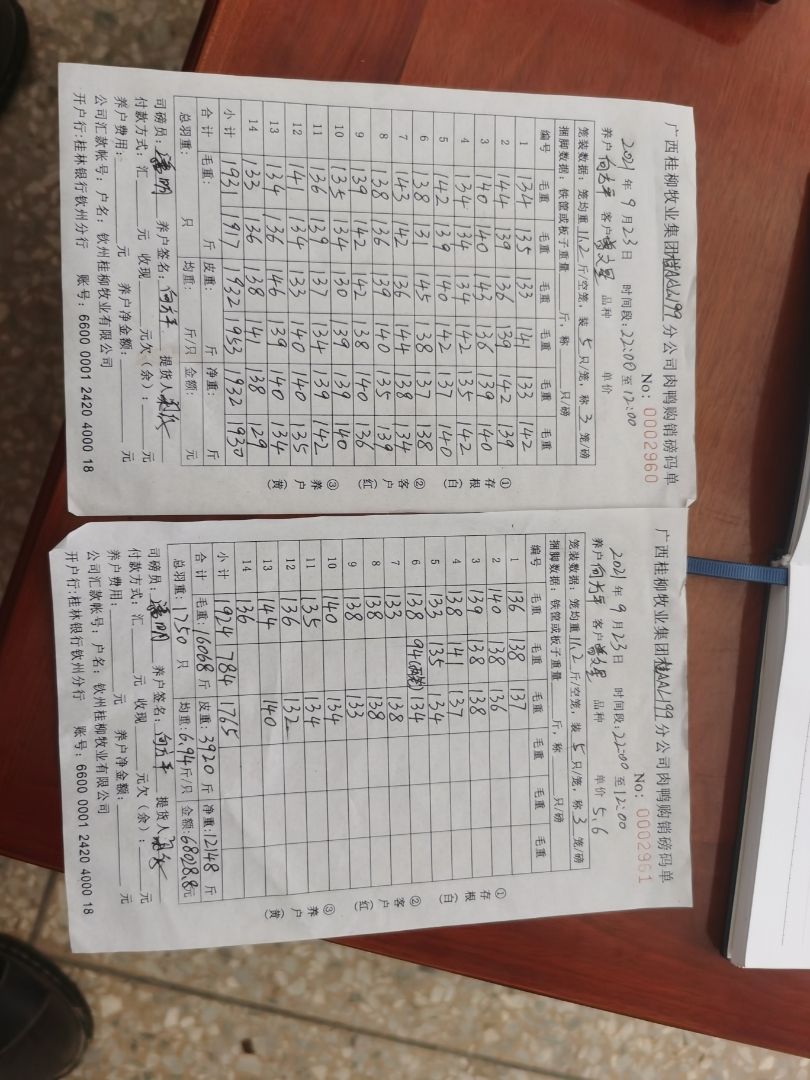 广西桂柳牧业集团桂AAL199分公司肉鸭购销磅码单
No: 0002960
2021年9月23日 时间段:22:00至12:00
养户 客户 品种 单价
笼装数据:笼均重11.2斤/空笼,装5只/笼,称3笼/磅
捆脚数据:铁筐或板子重量 斤,称 只/磅
编号 毛重 毛重 毛重 毛重 毛重 毛重
1 134 135 133 141 133 142
2 144 139 136 139 142 139
3 140 140 143 136 139 140
4 134 134 134 142 135 142
5 142 139 140 142 137 140
6 138 131 145 138 137 138
7 143 142 136 144 138 134
8 138 136 139 140 135 139
9 139 142 142 138 140 136
10 135 144 130 139 139 140
11 136 139 137 134 139 142
12 141 134 133 140 140 135
13 134 136 146 139 140 134
14 133 136 138 141 138 129
小计 1931 1917 1932 1953 1932 1930
合计 毛重: 斤 皮重: 斤 净重: 斤
总羽重: 只 均重: 斤/只 金额: 元
司磅员: 养户签名: 提货人:
付款方式:汇 元 收现 元欠(余): 元
养户费用: 元 养户净金额: 元
公司汇款帐号:户名:钦州桂柳牧业有限公司
开户行:桂林银行钦州分行 账号:6600 0001 2420 4000 18
①存根(白)
②客户(红)
③养户(黄)
广西桂柳牧业集团桂AAL199分公司肉鸭购销磅码单
No: 0002961
2021年9月23日 时间段:22:00至12:00
养户 客户 品种 单价5.6
笼装数据:笼均重11.2斤/空笼,装5只/笼,称3笼/磅
捆脚数据:铁筐或板子重量 斤,称 只/磅
编号 毛重 毛重 毛重 毛重 毛重 毛重
1 136 138 137
2 140 138 136
3 139 138 138
4 138 141 137
5 133 135 134
6 138 94(两笼) 134
7 133 138
8 138 138
9 138 133
10 140 134
11 135 134
12 136 132
13 144 140
14 136
小计 1924 784 1765
合计 毛重:16068斤 皮重:3920斤 净重:12148斤
总羽重:1750只 均重:6.94斤/只 金额:68028.8元
司磅员: 养户签名: 提货人:
付款方式:汇 元 收现 元欠(余): 元
养户费用: 元 养户净金额: 元
公司汇款帐号:户名:钦州桂柳牧业有限公司
开户行:桂林银行钦州分行 账号:6600 0001 2420 4000 18
①存根(白)
②客户(红)
③养户(黄)